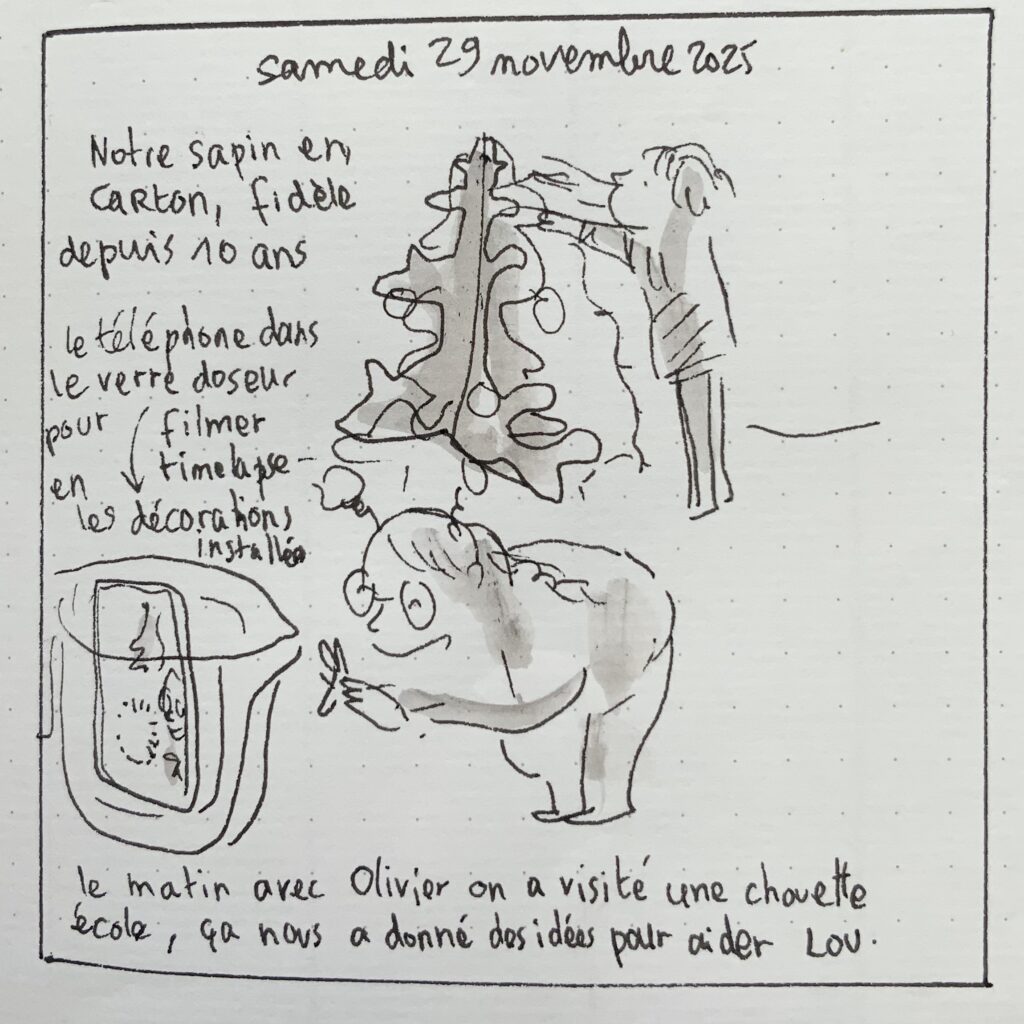 samedi 29 novembre 2025
Notre sapin en
carton, fidèle
depuis 10 ans
le téléphone dans
le verre doseur
pour filmer
en timelapse
les décorations
installées
le matin avec Olivier on a visité une chouette
école, ça nous a donné des idées pour aider Lou.